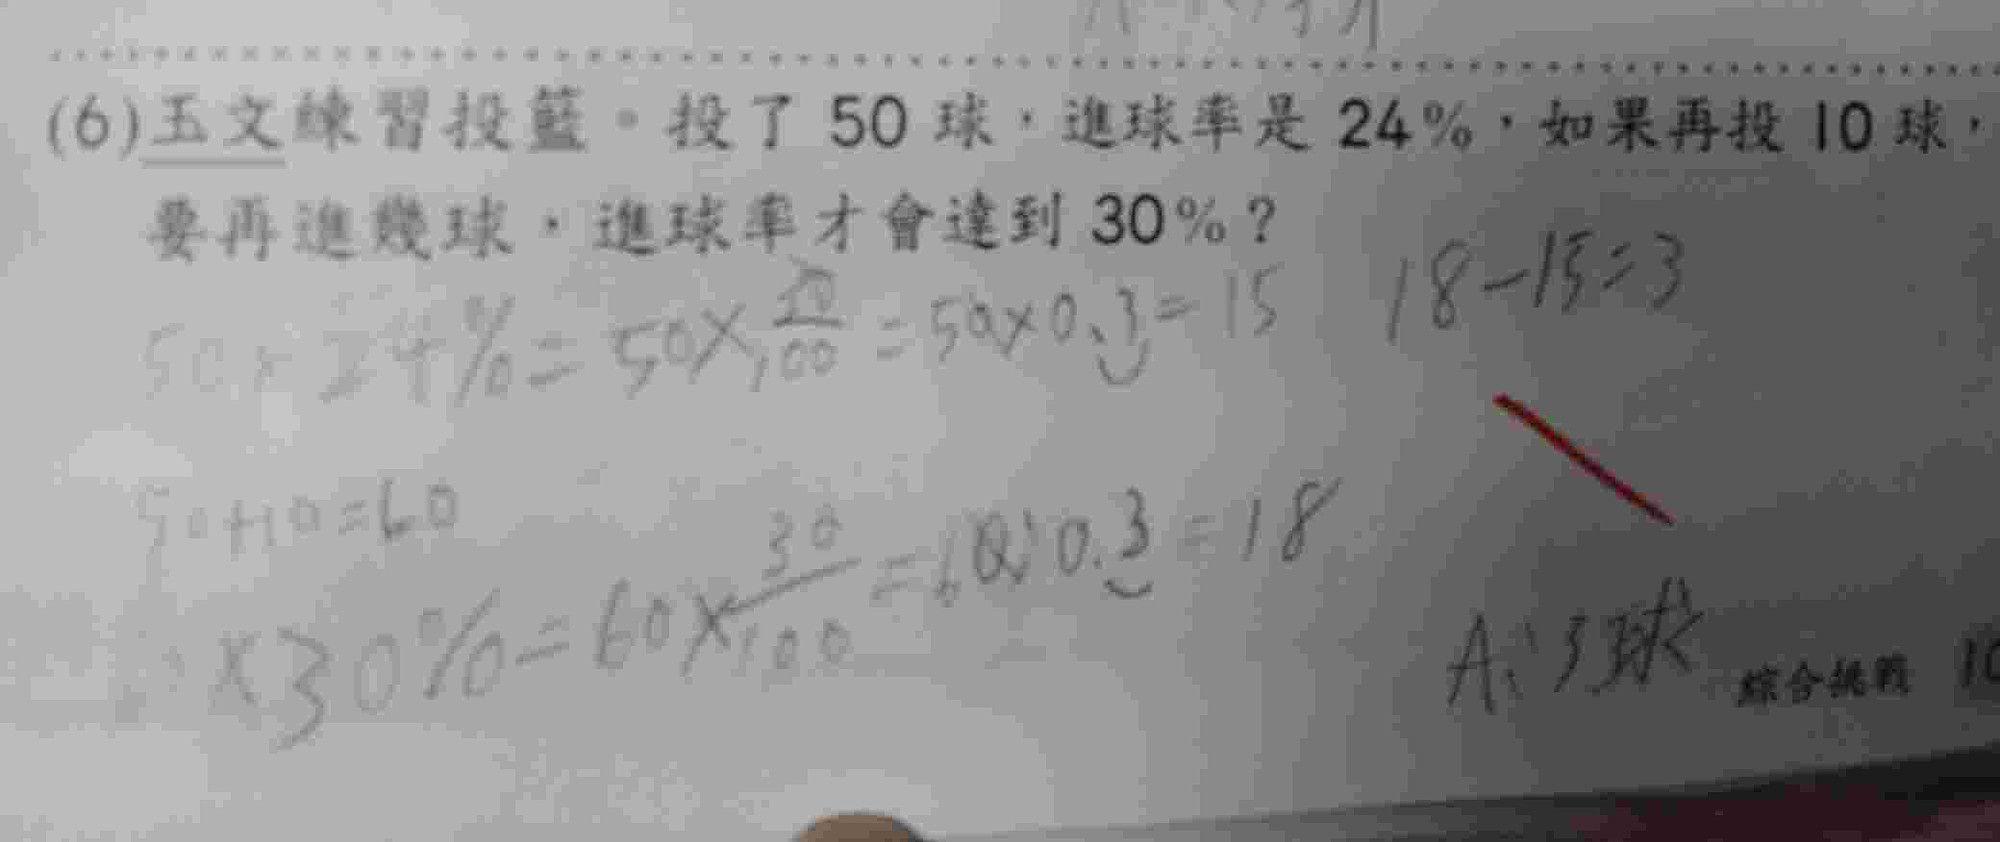 (6)玉文練習投籃。投了 50 球，進球率是 24%，如果再投 10 球，
要再進幾球，進球率才會達到 30%？
18-15=3
50×24%=50×30/100=50×0.3=15
50+10=60
×30%=60×30/100=60×0.3=18
A:3球
綜合挑戰 10